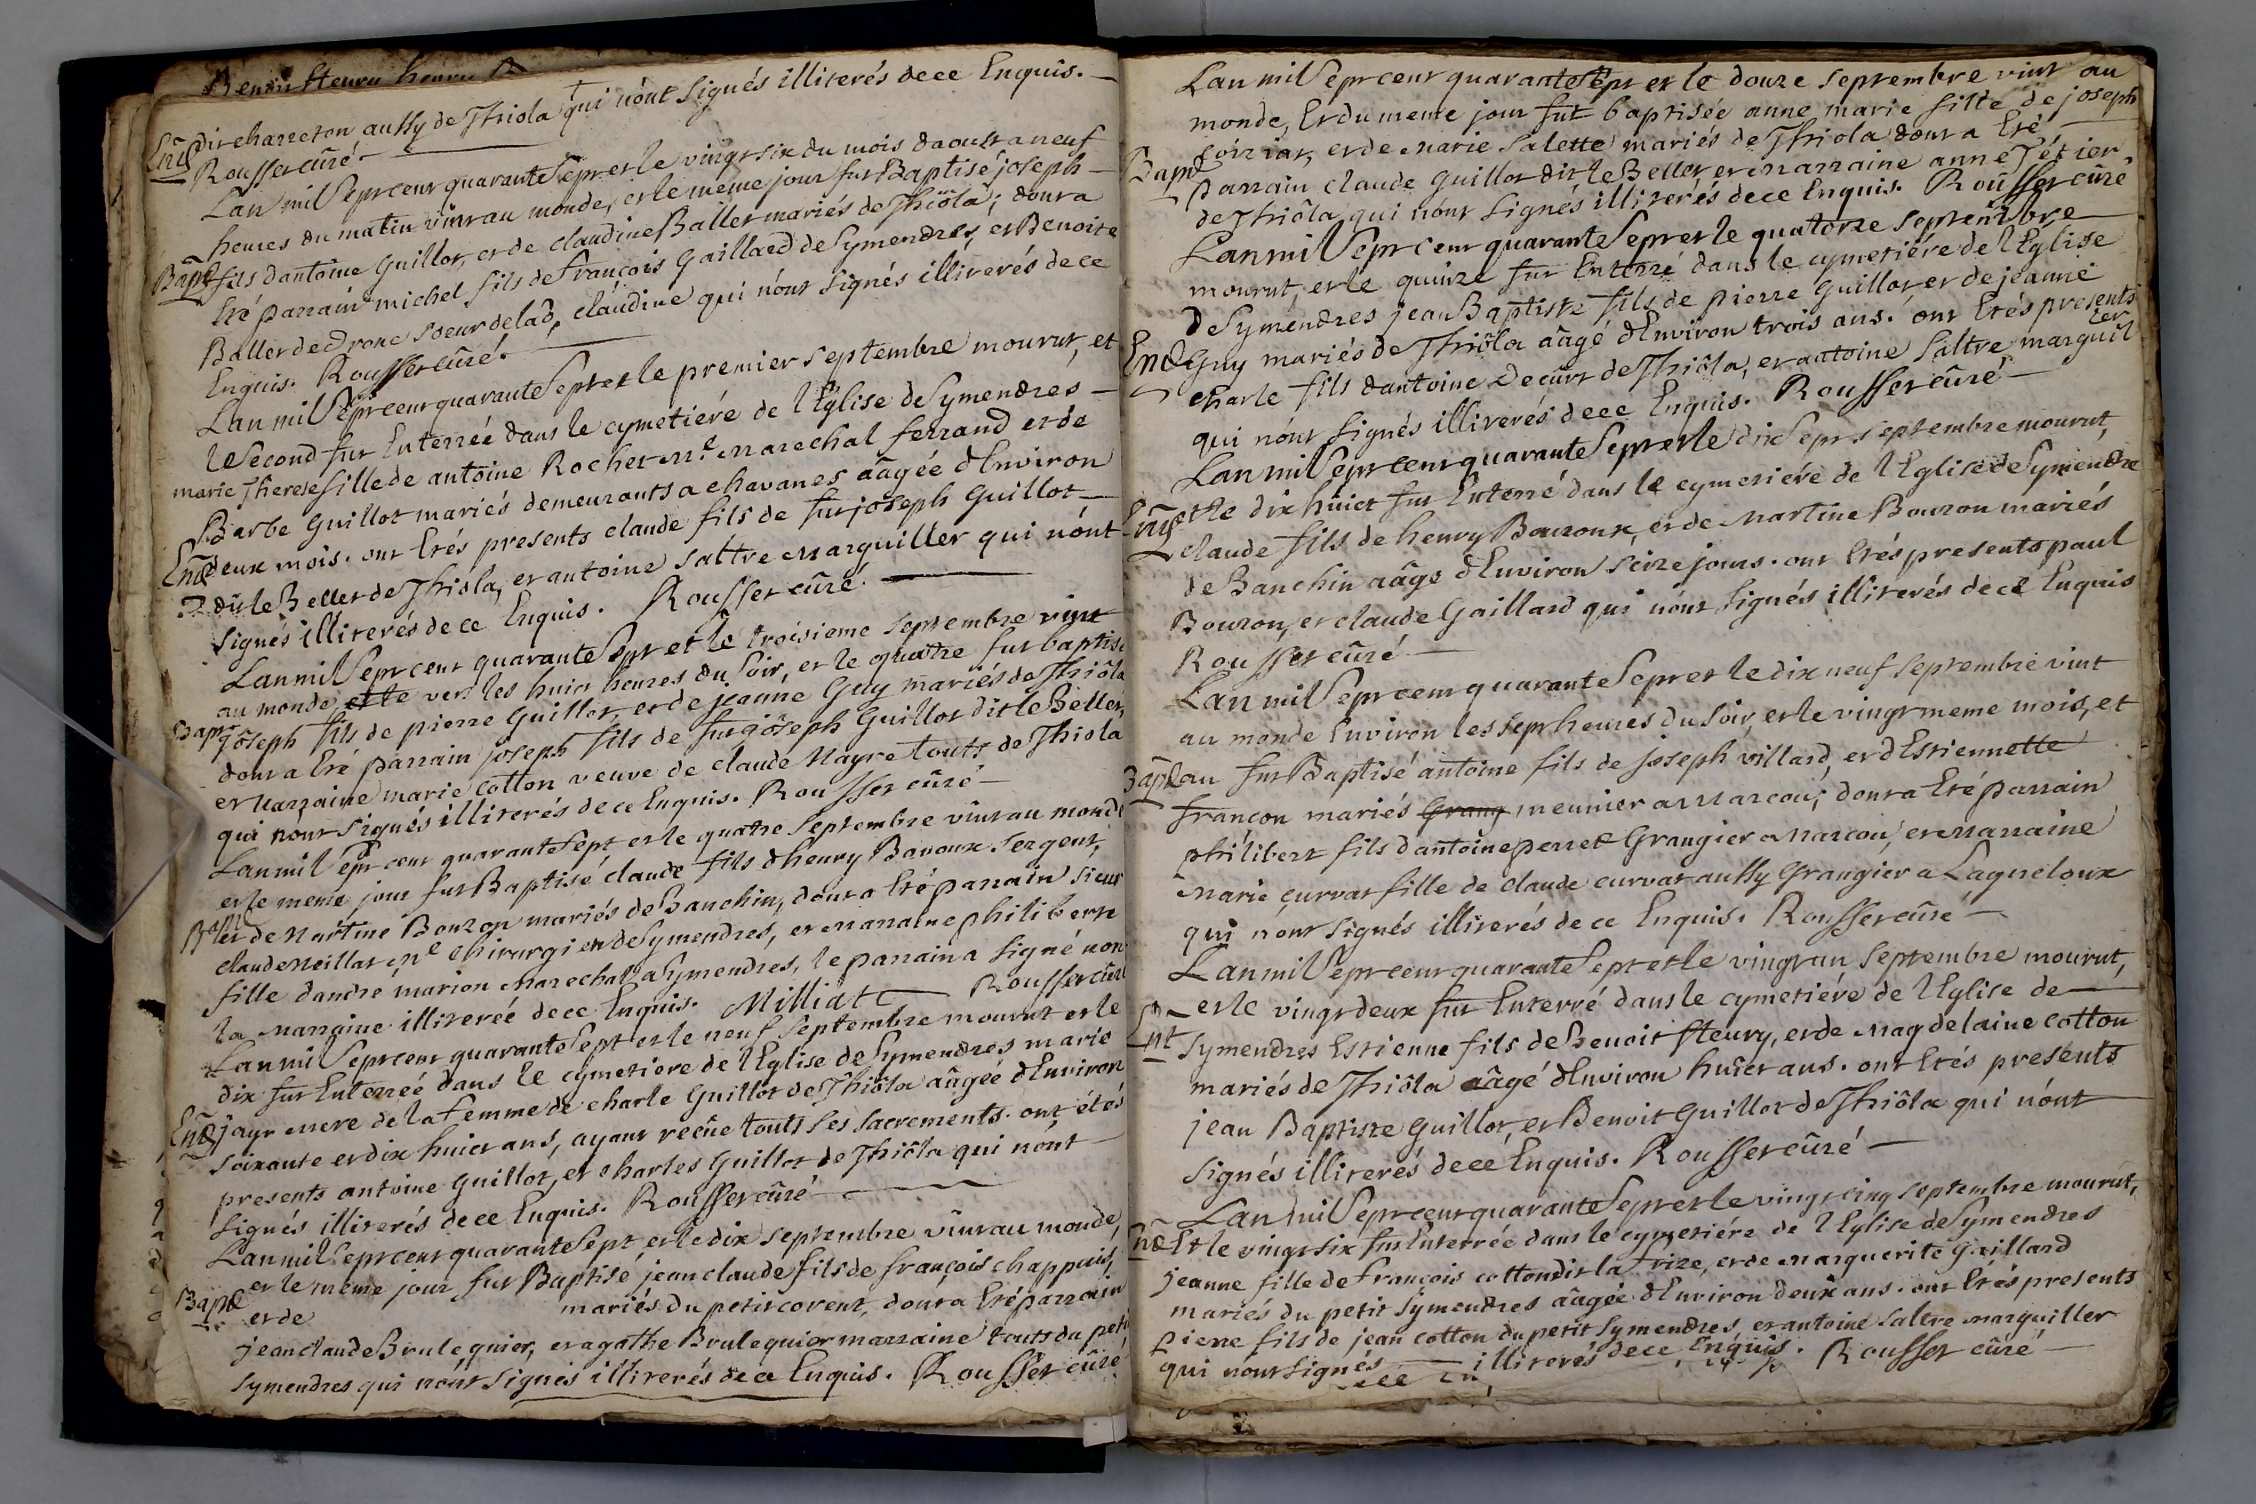 Benoit fleury henry
dit charreton aussy de Thiola qui nónt signés illiterés dece Enquis.
Ent
Rousset cûré
Lan mil Sept cent quarante Sept et le vingt six du mois daoust a neuf
heures du matin vint au monde, et le meme jour fut Baptisé joseph
Bapt fils dantoine Guillot, et de claudine Ballet mariés de Thiôla; dont a
Eté parrain michel fils de françois Gaillard de Symendres, et Benoite
Ballet de Drone soeur de lad. claudine qui nónt signés illiterés de ce
Enquis. Rousset cûré.
Lan mil Sept cent quarante Sept et le premier septembre mourut, et
le second fut Enterreé dans le cymetiére de lEglise de Symendres
marie Therese fille de antoine Rochet M.e marechal ferrand et de
Barbe Guillot mariés demeurants a chavanes aâgée dEnviron
Ent deux mois. ont Etés presents claude fils de fut joseph Guillot
dit le Bellet de Thiola, et antoine saltre Marguiller qui nónt
signés illiterés de ce Enquis. Rousset cûré.
Lan mil Sept cent quarante Sept et le troisieme septembre vint
au monde, et le vers les huict heures du soir, et le quatre fut baptisé
Bapt joseph fils de pierre Guillot, et de jeanne Guy mariés de Thiôla
dont a Eté parrain joseph fils de fut joseph Guillot dit le Bellet,
et Marraine marie cotton veuve de claude Nayre touts de Thiola
qui nont signés illiterés de ce Enquis. Rousset cûré
Lan mil Sept cent quarante Sept et le quatre septembre vint au monde
et le meme jour fut Baptisé claude fils dhenry Bauoux sergent,
Bapt et de Martine Bouzon mariés de Banchin, dont a Eté parrain sieur
claude Meillat M.e chirurgien de Symendres, et Marraine philiberte
fille dandre marion Marechal a Symendres, le parrain a signé non
la Marraine illitereé de ce Enquis. Milliat Rousset cûré
Lan mil Sept cent quarante Sept et le neuf septembre mourut et le
dix fut Enterreé dans le cymetiere de lEglise de Symendres marie
Ent jayr mere de la femme de charle Guillot de Thiôla aâgeé dEnviron
soixante et dix huict ans, ayant reçûe touts ses sacrements. ont étés
presents antoine Guillot, et charles Guillot de Thiôla qui nónt
signés illiterés de ce Enquis. Rousset cûré
Lan mil Sept cent quarante Sept et le dix septembre vint au monde,
et le même jour fut Baptisé jean claude fils de françois chappuis,
Bapt et de mariés du petit corent, dont a Eté parrain
jean claude Brulequier, et agathe Brulequier marraine touts du petit
Symendres qui nónt signés illiterés de ce Enquis. Rousset cûré
Lan mil Sept cent quarante Sept et le douze septembre vint au
monde, Et du meme jour fut baptisée anne marie fille de joseph
et de Marie Salette mariés de Thiola dont a Eté
Bapt
parrain claude Guillot dit le Bellet, et Marraine anne
de Thiôla qui nónt signés illiterés de ce Enquis. Rousset curé
Lan mil Sept cent quarante Sept et le quatorze septembre
mourut, et le quinze fut Enterré dans le cymetiére de lEglise
de Symendres jean Baptiste fils de pierre Guillot et de jeanne
Ent Guy mariés de Thiôla aâgé dEnviron trois ans. ónt Etés presents
charle fils dantoine Decûrt de Thiôla, et antoine saltre marguiller
qui nónt signés illiterés de ce Enquis. Rousset cûré
Lan mil Sept cent quarante Sept et le dix Sept septembre mourut,
Ent et le dix huict fut Enterré dans le cymetiére de lEglise de Symendre
claude fils de henry Bauoux, et de Martine Bouzon mariés
de Banchin aâgé dEnviron seize jours. ont Etés presents paul
Bouzon, et claude Gaillard qui nónt signés illiterés de ce Enquis
Rousset cûré
Lan mil Sept cent quarante Sept et le dix neuf septembre vint
au monde Environ les sept heures du soir, et le vingt meme mois, et
Bapt an fut Baptisé antoine fils de joseph villard, et dEstiennette
francon mariés Grang meunier a Marcou; dont a Eté parrain
philibert fils dantoine perret Grangier a Marcou, et Marraine
Marie curvat fille de claude curvat aussy Grangier a Laqueloux
qui nónt signés illiterés de ce Enquis. Rousset cûré
Lan mil Sept cent quarante Sept et le vingt un septembre mourut,
Ent et le vingt deux fut Enterré dans le cymetiére de lEglise de
Symendres Estienne fils de Benoit fleury, et de Magdelaine cotton
mariés de Thiôla aâgé dEnviron huict ans. ont Etés presents
jean Baptiste Guillot, et Benoit Guillot de Thiôla qui nónt
signés illiterés de ce Enquis. Rousset cûré
Lan mil Sept cent quarante Sept et le vingt cinq septembre mourut,
Ent Et le vingt six fut Enterreé dans le cymetiére de lEglise de Symendres
jeanne fille de françois cotton dit la frize, et de Marguerite Gaillard
mariés du petit Symendres aâgée dEnviron deux ans. ont Etés presents
pierre fils de jean cotton du petit Symendres, et antoine saltre marguiller
qui nont signés illiterés de ce Enquis. Rousset cûré